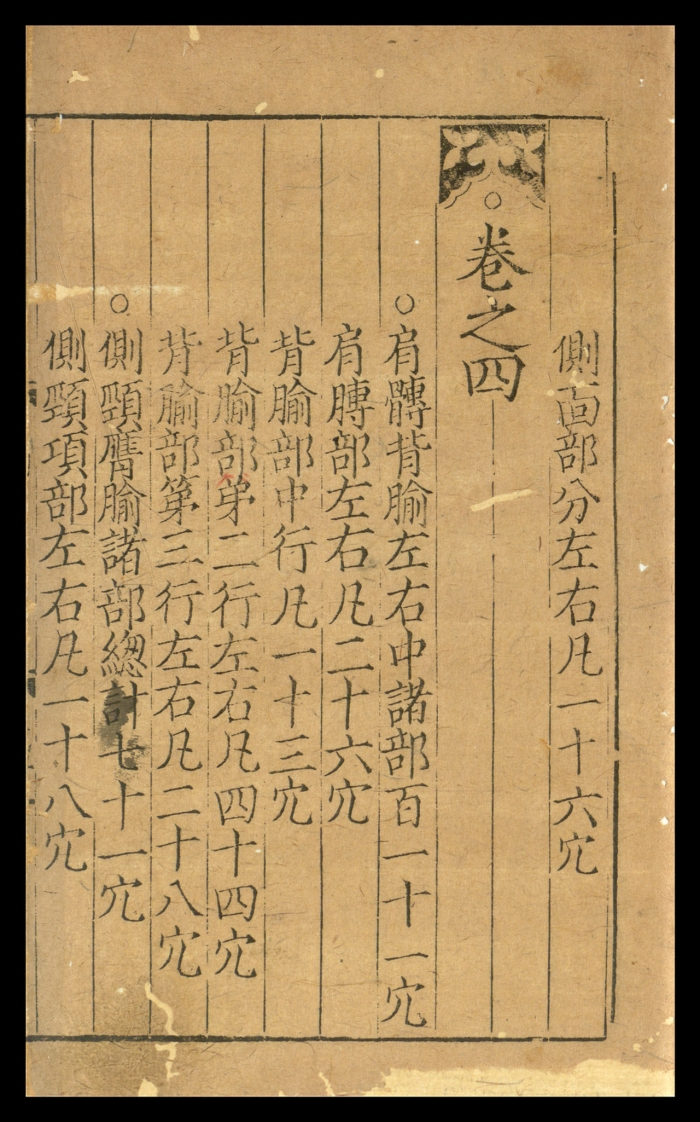 側面部分左右凡一十六穴
○卷之四
○肩髆背腧左右中諸部百一十一穴
肩膊部左右凡二十六穴
背腧部中行凡一十三穴
背腧部第二行左右凡四十四穴
背腧部第三行左右凡二十八穴
○側頸膺腧諸部總計七十一穴
側頸項部左右凡一十八穴